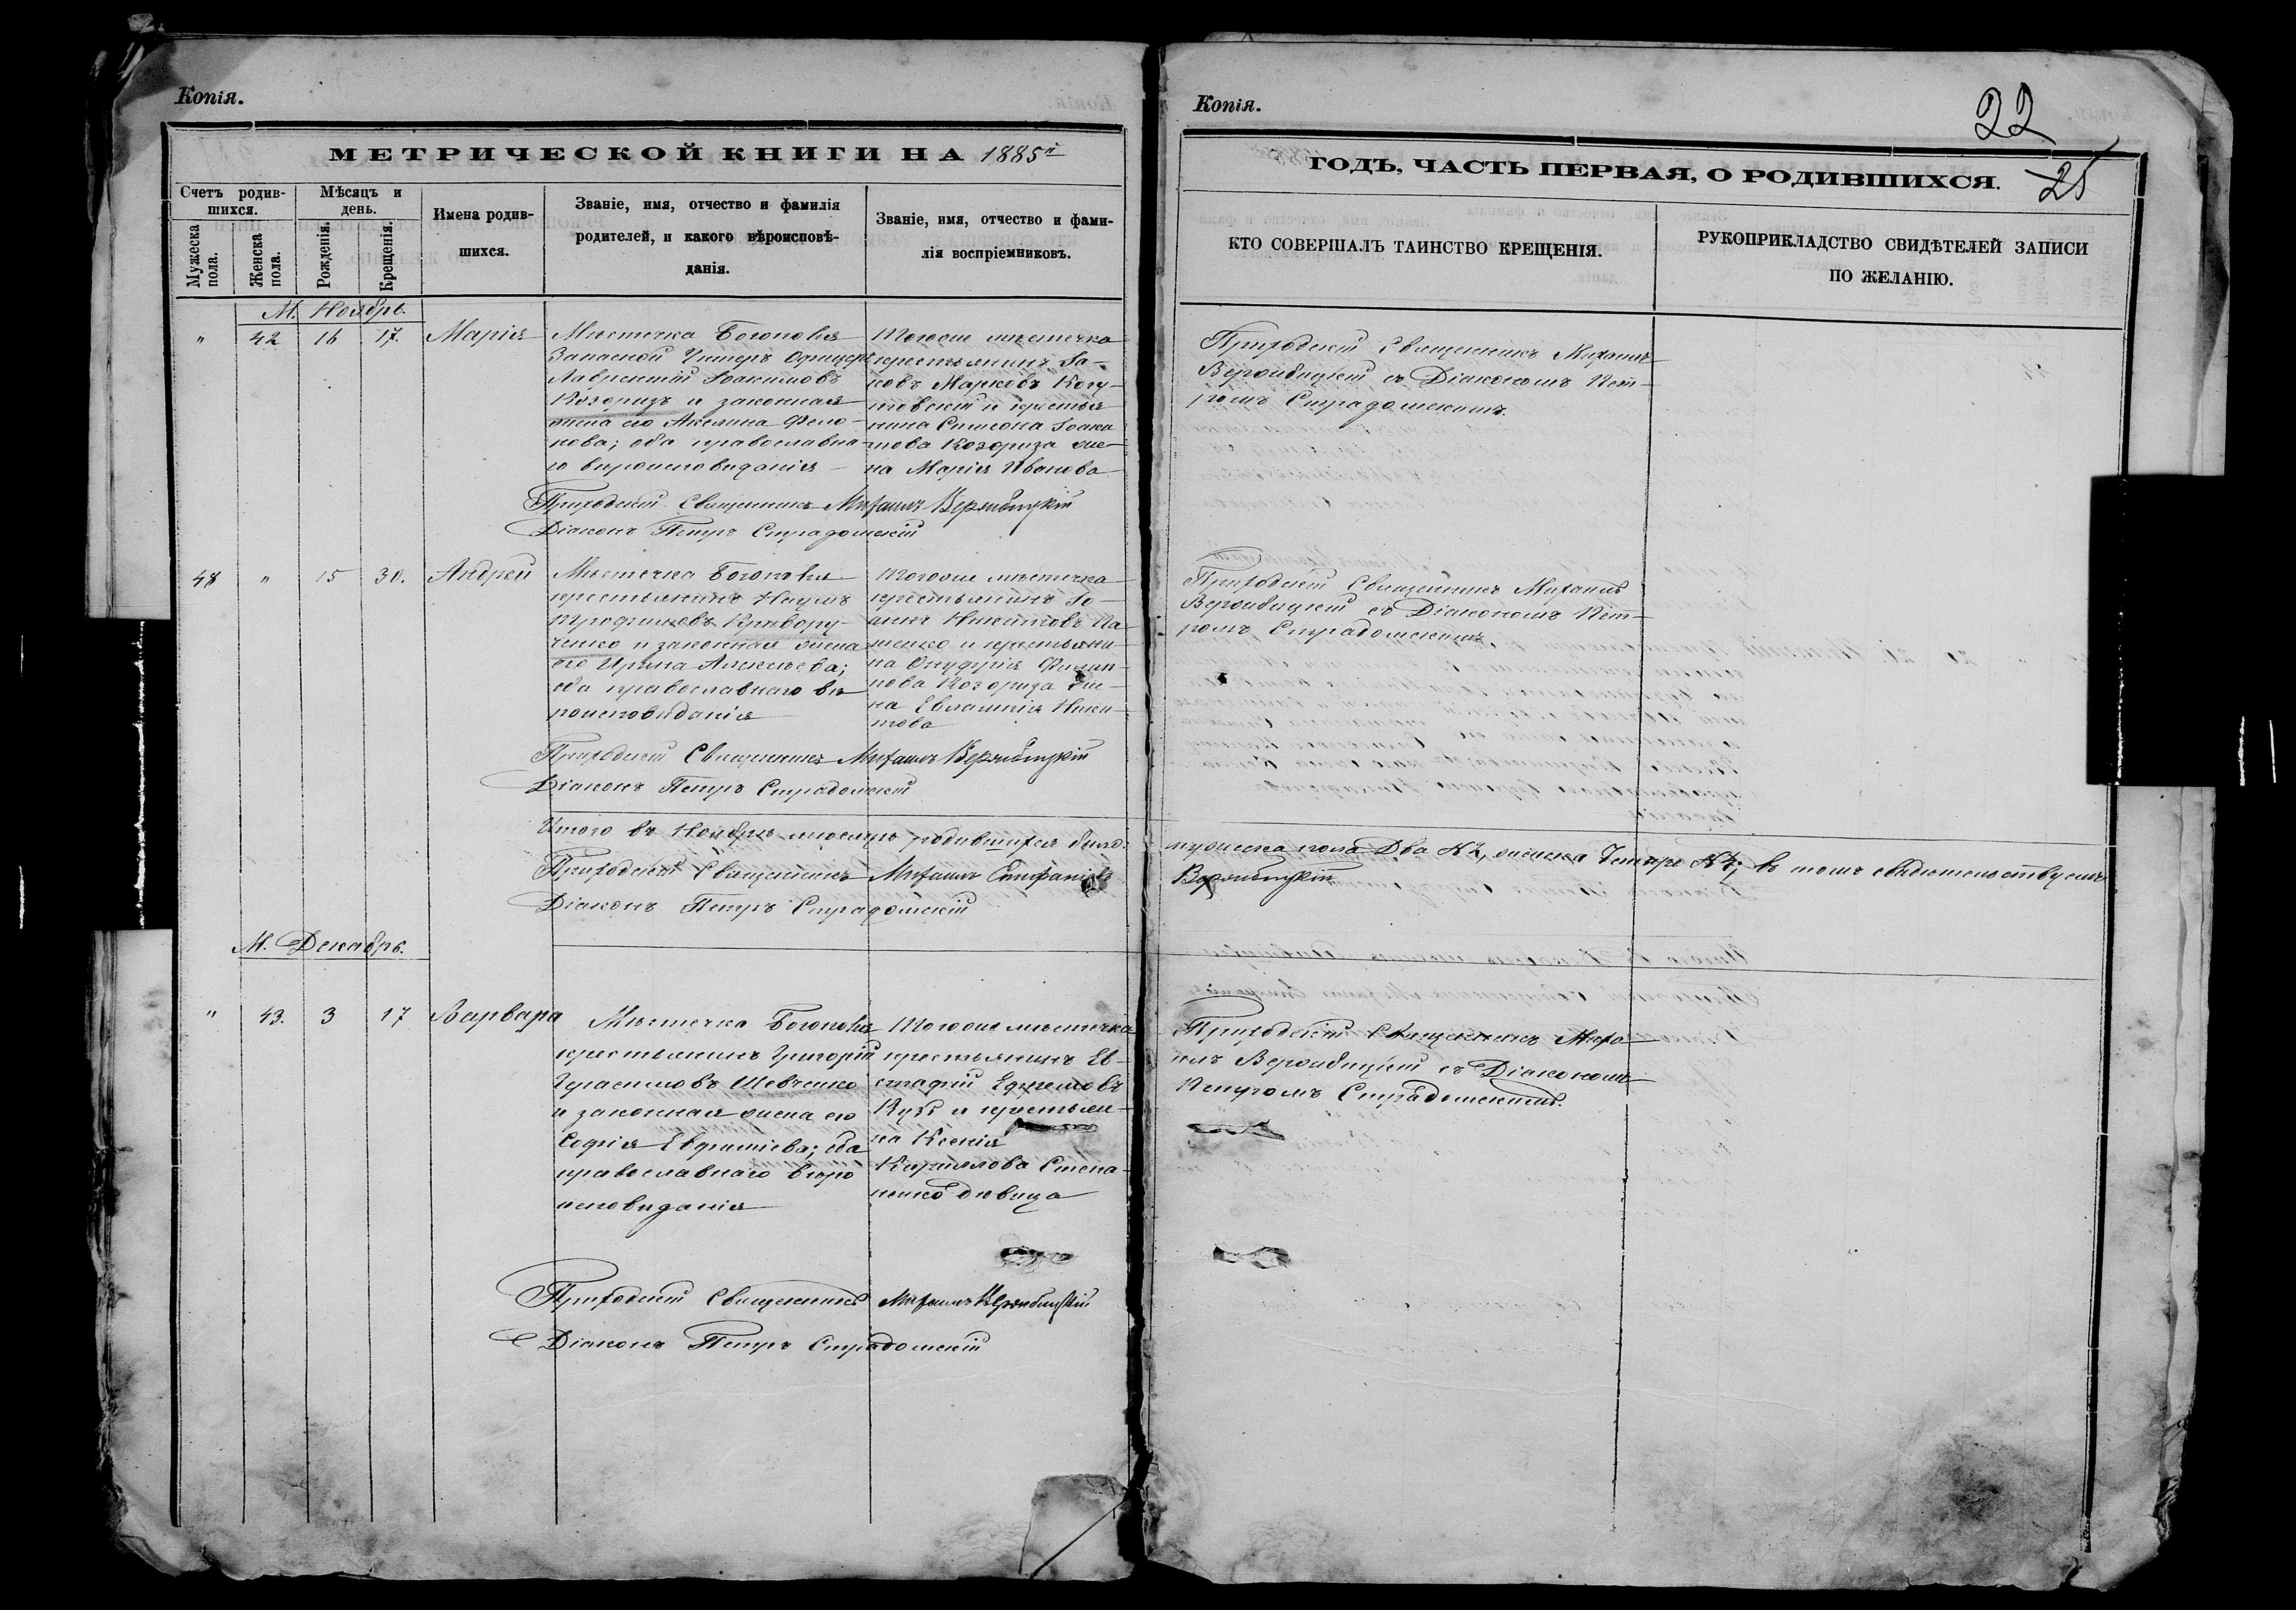 Копія.
МЕТРИЧЕСКОЙ КНИГИ НА 1885й
Счетъ родив-
шихся.
Мужеска
пола.
Женска
пола.
Мѣсяцъ и
день.
Рожденія.
Крещенія.
Имена родив-
шихся.
Званіе, имя, отчество и фамилія
родителей, и какого вѣроисповѣ-
данія.
Званіе, имя, отчество и фами-
лія воспріемниковъ.
М. Ноябрь.
" 42 16 17. Марія
Мѣстечка Богополя
Запасной Унтеръ Офицеръ
Лаврентій Іоакимовъ
Козоризъ и законная
жена его Акилина
; оба православна-
го вѣроисповѣданія
Тогоже мѣстечка
крестьянинъ Іа-
ковъ Марковъ Когу-
товскій и крестья
нина Симеона Іоаки
мова Козориза же-
на Марія Иванова
Приходскій Священникъ Михаилъ Вержбицкій
Діаконъ Петръ Страдомскій
48 " 15 30. Андрей
Мѣстечка Богополя
крестьянинъ Наумъ
Трофимовъ Кривору-
ченко и законная жена
его Ирина Алексѣева;
оба православнаго вѣ
роисповѣданія
Тогоже мѣстечка
крестьянинъ
Никитовъ
и крестьяни-
на Онуфрія Филип-
пова Козориза же-
на Евлампія Ники-
това
Приходскій Священникъ Михаилъ Вержбицкій
Діаконъ Петръ Страдомскій
Итого въ Ноябрѣ мѣсяцѣ родившихся было:
Приходскій Священникъ Михаилъ Епифаніевъ
Діаконъ Петръ Страдомскій
М. Декабрь.
" 43. 3 17 Варвара
Мѣстечка Богополя
крестьянинъ Григорій
Герасимовъ Шевченко
и законная жена его
Софія Евфиміева; оба
православнаго вѣро
исповѣданія
Тогоже мѣстечка
крестьянинъ Ев-
стафій Ефремовъ
и крестьян-
ка Ксенія
Кириллова Степа-
ненко дѣвица
Приходскій Священникъ Михаилъ Вержбицкій
Діаконъ Петръ Страдомскій
Копія.
22
25
ГОДЪ, ЧАСТЬ ПЕРВАЯ, О РОДИВШИХСЯ.
КТО СОВЕРШАЛЪ ТАИНСТВО КРЕЩЕНІЯ.
РУКОПРИКЛАДСТВО СВИДѢТЕЛЕЙ ЗАПИСИ
ПО ЖЕЛАНІЮ.
Приходскій Священникъ Михаилъ
Вержбицкій съ Діакономъ Пет-
ромъ Страдомскимъ.
Приходскій Священникъ Михаилъ
Вержбицкій съ Діакономъ Пет-
ромъ Страдомскимъ.
мужеска пола Два №2, женска Четыре №4; въ томъ свидѣтельствуемъ
Вержбицкій
Приходскій Священникъ Миха-
илъ Вержбицкій съ Діакономъ
Петромъ Страдомскимъ.